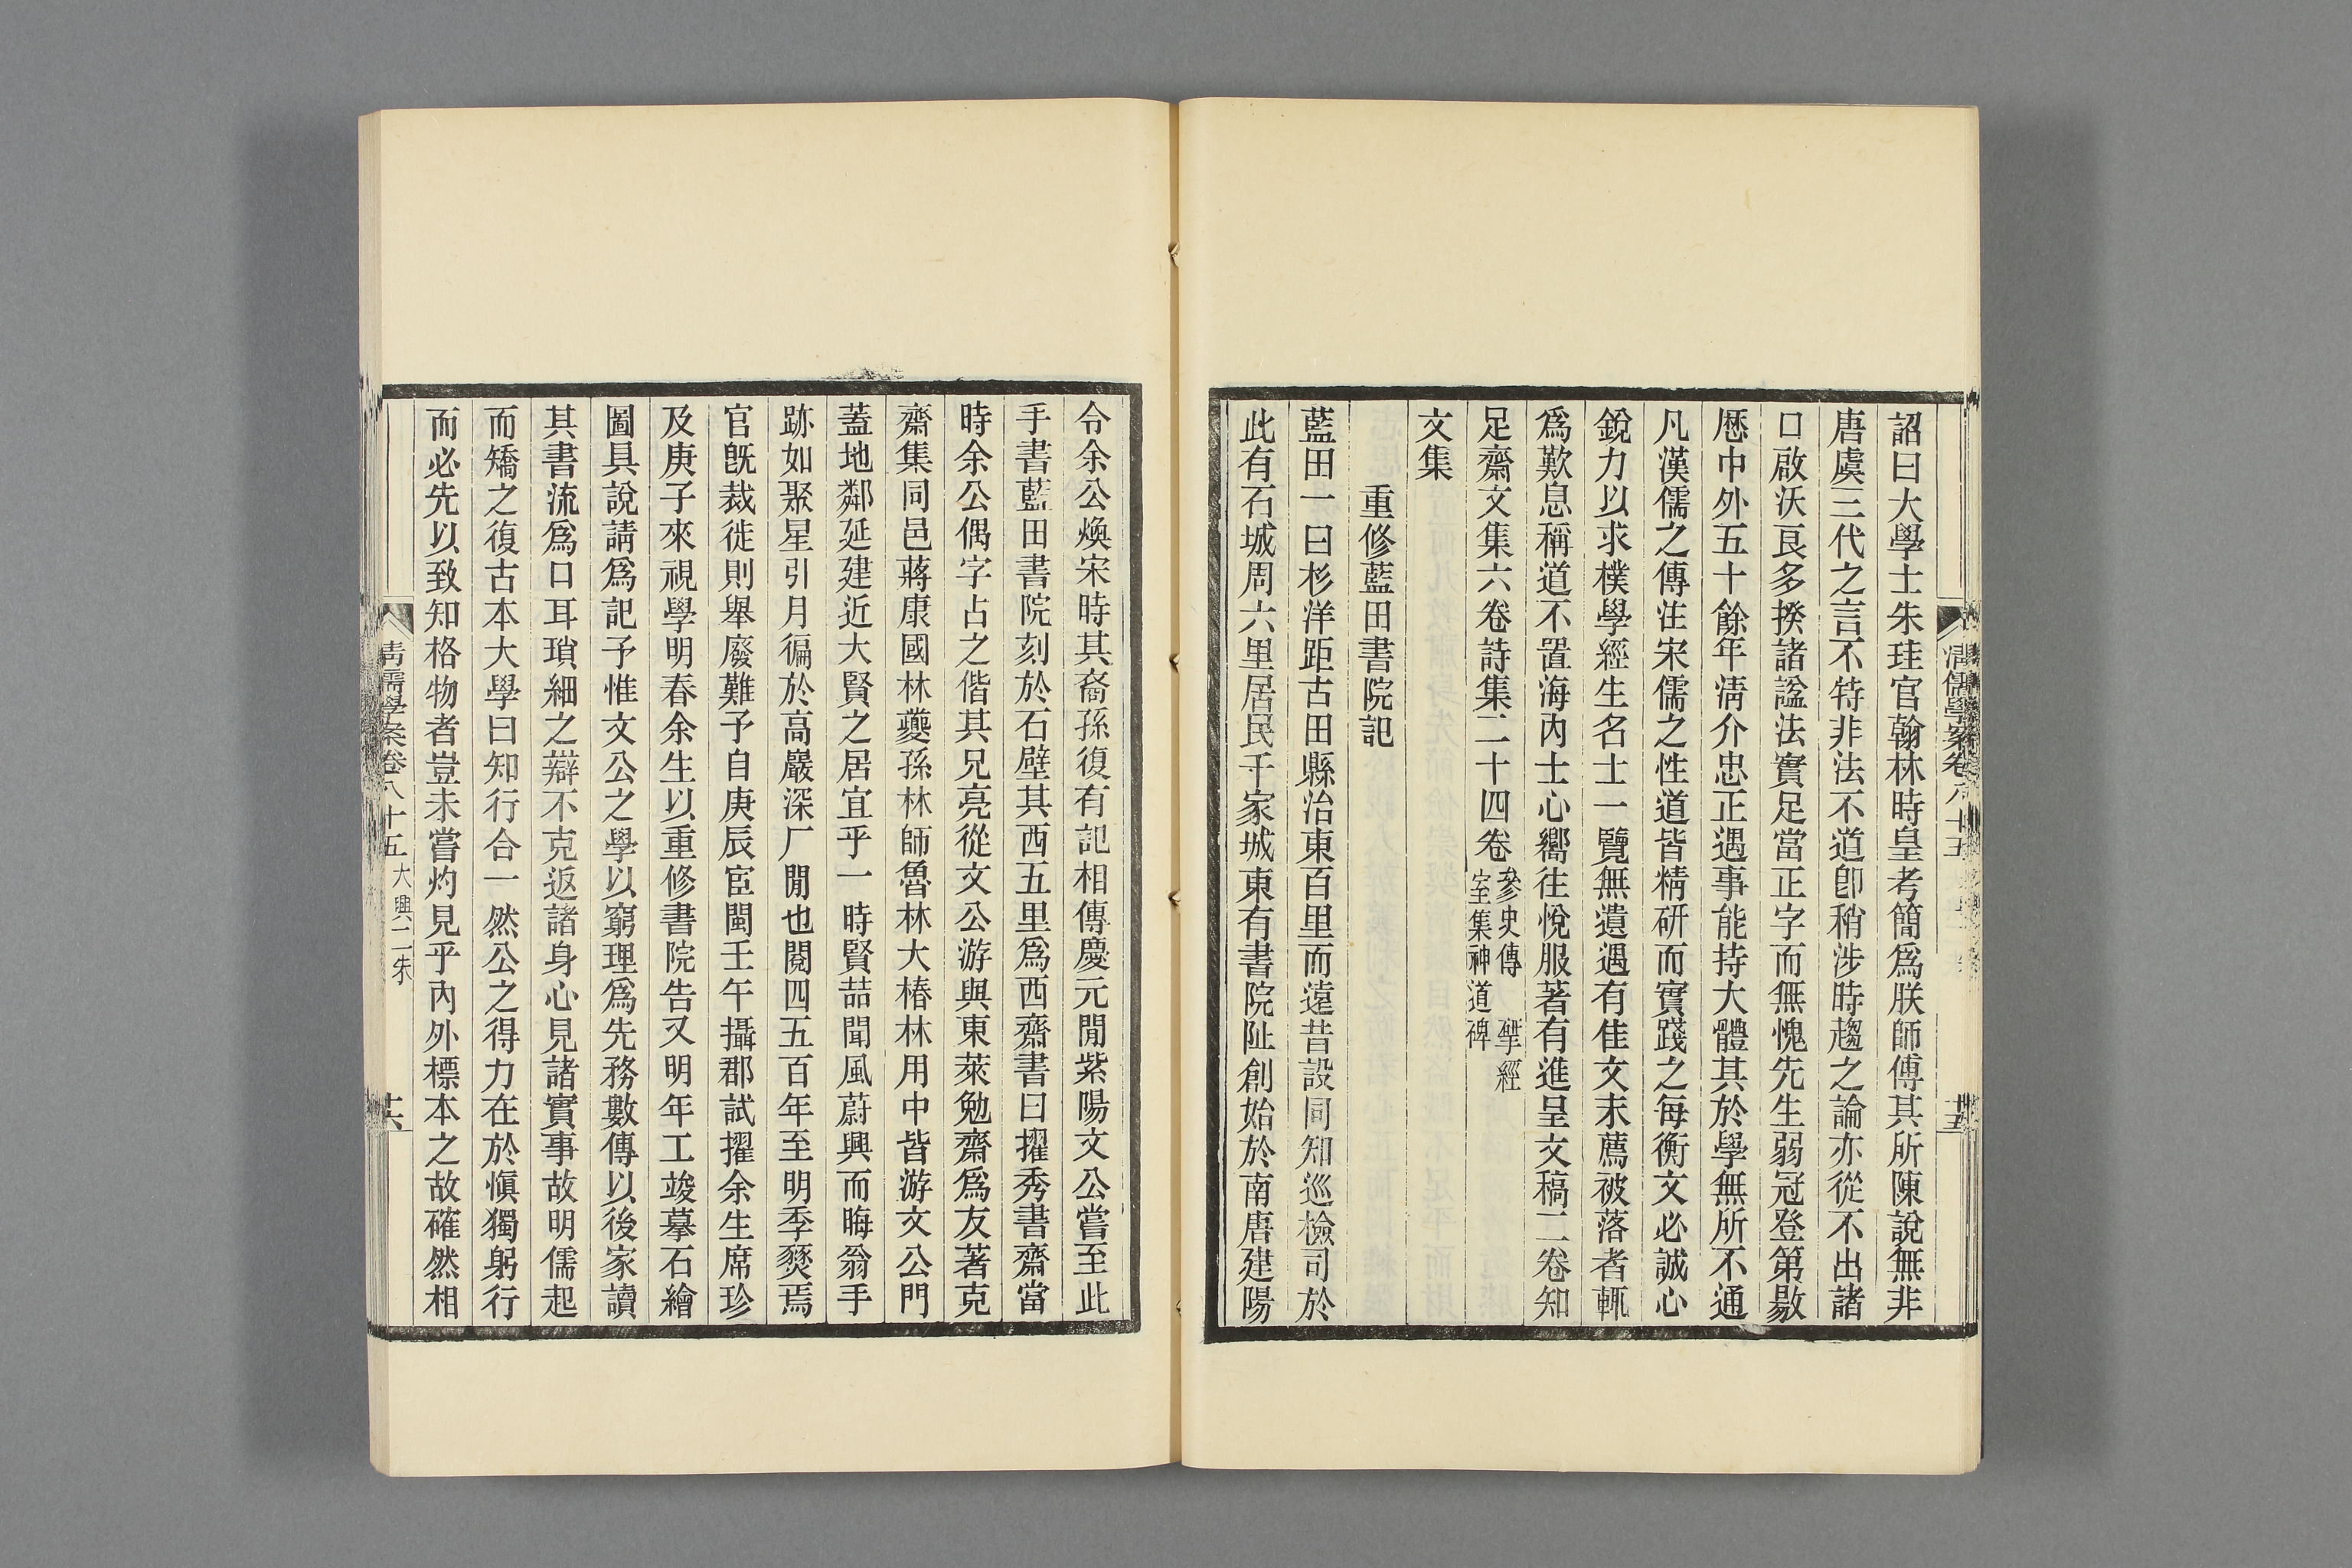 詔曰大學士朱珪官翰林時皇考簡爲朕師傅其所陳說無非
唐虞三代之言不特非法不道卽稍涉時趨之論亦從不出諸
口啟沃良多揆諸諡法實足當正字而無愧先生弱冠登第敭
歷中外五十餘年淸介忠正遇事能持大體其於學無所不通
凡漢儒之傳注宋儒之性道皆精硏而實踐之每衡文必誠心
銳力以求樸學經生名士一覽無遺遇有佳文未薦被落者輒
爲歎息稱道不置海內士心嚮往悅服著有進呈文稿二卷知
足齋文集六卷詩集二十四卷參史傳　揅經
室集神道碑
文集
重修藍田書院記
藍田一曰杉洋距古田縣治東百里而遠昔設同知巡檢司於
此有石城周六里居民千家城東有書院阯創始於南唐建陽
令余公煥宋時其裔孫復有記相傳慶元閒紫陽文公嘗至此
手書藍田書院刻於石壁其西五里爲西齋書曰擢秀書齋當
時余公偶字占之偕其兄亮從文公游與東萊勉齋爲友著克
齋集同邑蔣康國林夔孫林師魯林大椿林用中皆游文公門
蓋地鄰延建近大賢之居宜乎一時賢喆聞風蔚興而晦翁手
跡如聚星引月徧於高巖深厂閒也閱四五百年至明季燹焉
官旣裁徙則舉廢難予自庚辰宦閩壬午攝郡試擢余生席珍
及庚子來視學明春余生以重修書院告又明年工竣摹石繪
圖具說請爲記予惟文公之學以窮理爲先務數傳以後家讀
其書流爲口耳瑣細之辯不克返諸身心見諸實事故明儒起
而矯之復古本大學曰知行合一然公之得力在於愼獨躬行
而必先以致知格物者豈未嘗灼見乎內外標本之故確然相
淸儒學案卷八十五　大興二朱